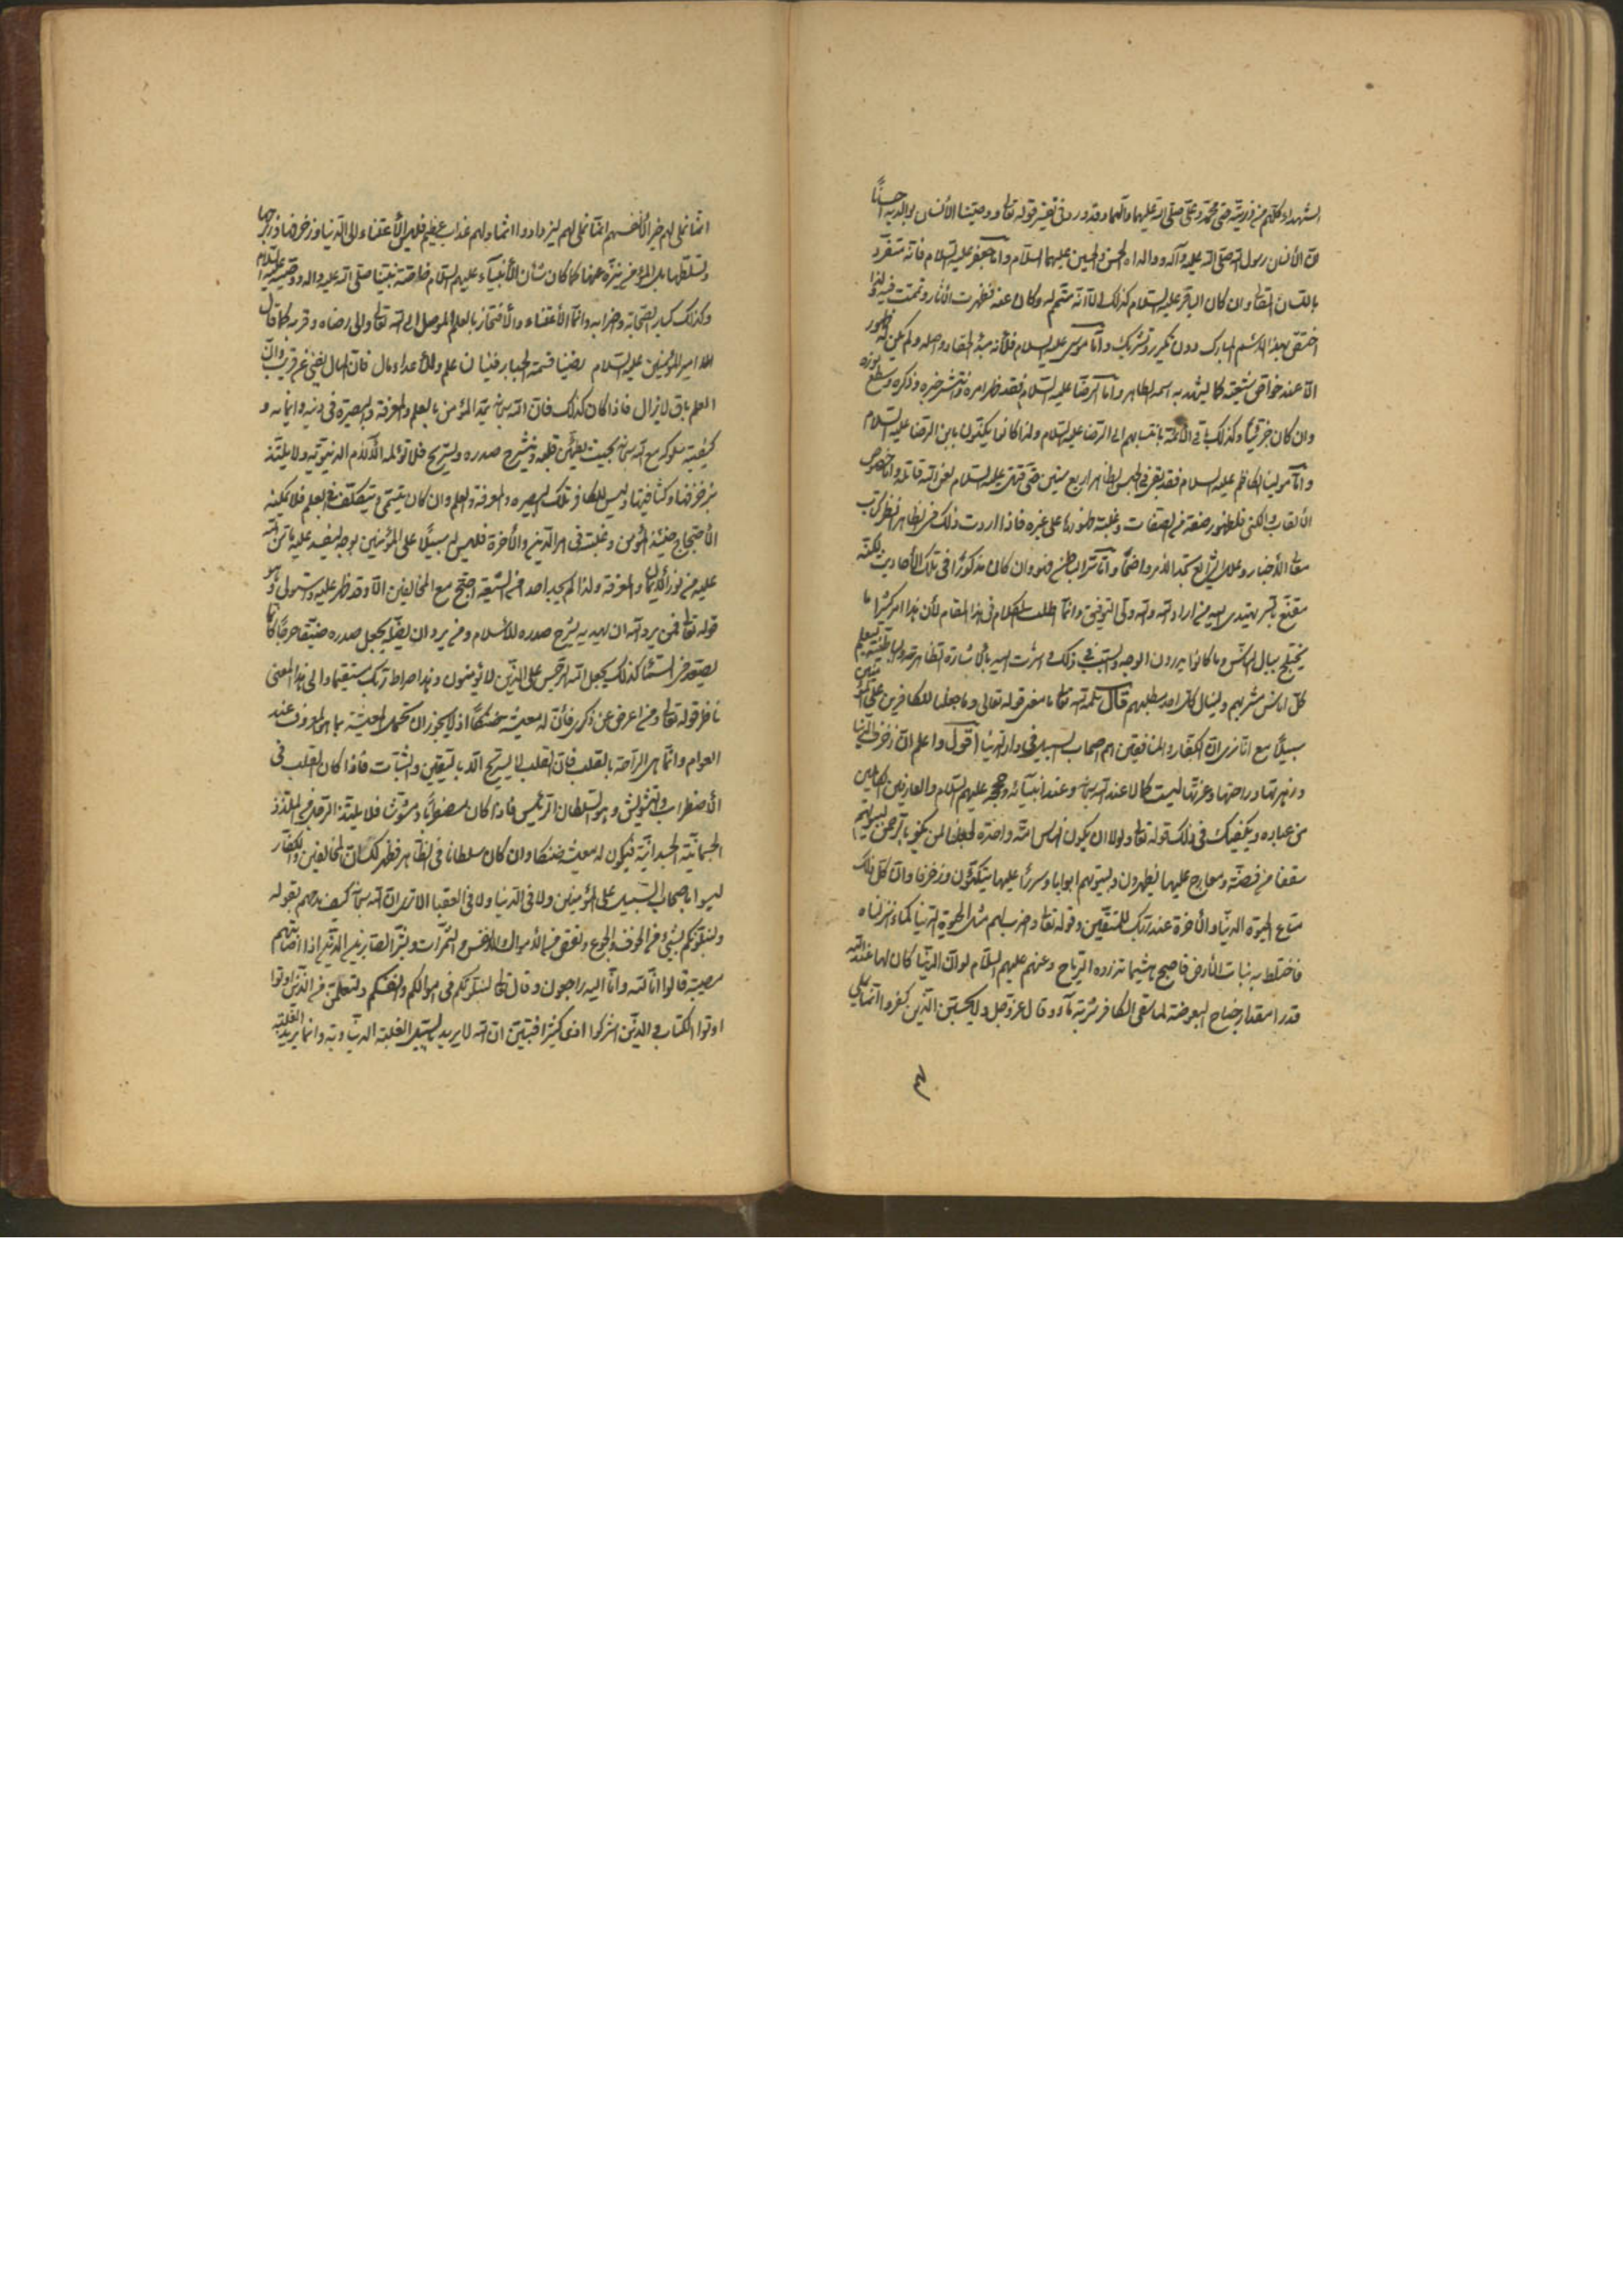 الشهداء كلهم من ذريته حتى محمد وعلى صلى الله عليهما وآلهما وقد ورد في تفسير قوله تعالى ووصينا الأنسان بوالديه حسنًا
انّ الأنسان رسول الله صلى الله عليه وآله ووالداه الحسن والحسين عليهما السلام وامّا جعفر عليه السلام فانّه متفرد
باللسان وان كان الباقر عليه السلام كذلك الّا انّه متمم له وكان عنه فظهرت الأثار وتمت فيه ولذا
اختصّ بهذا الأسم المبارك دون تكرير وتشريك وامّا موسى عليه السلام فلأنه مبدء واصله ولم يكن له ظهور
الّا عند خواصّ شيعته كما يشهد به اسمه الطاهر وامّا الرضا عليه السلام فقد ظهر امره وانتشر خبره وذكره وسطع نوره
وان كان وكذلك باقي الأئمة بانتسابهم الى الرضا عليه السلام ولذا كانوا يكنّون بابن الرضا عليه السلام
وامّا مولينا الكاظم عليه السلام فقد بقى في الحبس الظاهر اربع سنين حتى قتل عليه السلام لعن الله قاتله وامّا خصوص
الألقاب والكنى فلظهور صفة من الصفات وغلبة ظهورها على غيره فاذا اردت ذلك في الظاهر فانظر كتاب
معانى الأخبار وعلل الشرايع تجد الأمر واضحًا وامّا سرّ الباطن فهو وان كان مذكورًا في تلك الأحاديث لكنّه
مقنّع بالسرّ يهتدى اليه من اراد الله والله ولى التوفيق وانّما اطلت الكلام في هذا المقام لأن هذا امر كثيرًا ما
يختلج ببال الناس وما كانوا يدرون الوجه والسبب في ذلك فاشرت اليه بالأشارة الظاهرة والباطنية ليعلم
كلّ اناس مشربهم وينال كلّ احد مطلبهم قال سلمه الله تعالى ما معنى قوله تعالى وما جعلنا للكافرين على المؤمنين
سبيلًا مع انّا نرى انّ الكفّار والمنافقين هم اصحاب السبيل في دار الدنيا اقول واعلم انّ زخرف الدنيا
وزهرتها وراحتها وعزتها ليست كمالا عند الله سبحانه وعند انبيائه وحججه عليهم السلام والعارفين الكاملين
من عباده ويكفيك في ذلك قوله تعالى ولولا ان يكون الناس امّة واحدة لجعلنا لمن يكفر بالرحمن لبيوتهم
سقفا من فضّة ومعارج عليها يظهرون ولبيوتهم ابوابا وسررًا عليها يتّكئون وزخرفا وان كلّ ذلك
متاع الحيوة الدنيا والأخرة عند ربّك للمتّقين وقوله تعالى واضرب لهم مثل الحيوة الدنيا كماء انزلناه
فاختلط به نبات الأرض فاصبح هشيما تذروه الرياح وعنهم عليهم السلام لو انّ الدنيا كان لها عند الله
قدرا مقدار جناح البعوضة لما سقى الكافر شربة ماء وقال عزّ وجل ولا يحسبنّ الذين كفروا انّما نملى
انّما نملى لهم خير لأنفسهم انّما نملى لهم ليزدادوا اثما ولهم عذاب عظيم فليس الأعتناء الى الدنيا وزخرفها وزبرجها
وتسلطها بل المؤمن منزّه عنها كما كان شأن الأنبياء عليهم السلام خاصّة نبيّنا صلى الله عليه واله ووصيه عليه السلام
وكذلك كبار الصّحابة واضرابه وانّما الأعتناء والأفتخار بالعلم الموصل الى الله تعالى والى رضاه وقربه كما قال
امير المؤمنين عليه السلام رضينا قسمة الجبار فينا لنا علم وللأعداء مال فانّ المال يفنى عن قريب وانّ
العلم باق لا يزال فاذا كان كذلك فان الله سبحانه يمدّ المؤمن بالعلم والمعرفة والبصيرة في دينه وايمانه و
كيفية سلوكه مع الله سبحانه بحيث يطمئن قلبه وينشرح صدره ويستريح فلا تؤلمه الألام الدنيوية ولا يلتذ
بزخرفها وليس للكافر تلك البصيرة والمعرفة والعلم وان كان في العلم فلا يمكنه
الأحتجاج وغلبته في امر الدين والأخرة فليس له سبيلًا على المؤمنين بوجه
عليه من نور الأيمان والمعرفة ولذا لم يجد احد من الشيعة احتج مع المخالفين الّا وقد ظهر عليه واستولى وهو
قوله تعالى فمن يرد الله ان يهديه يشرح صدره للأسلام ومن يرد ان يضلّه يجعل صدره ضيّقا حرجًا كانّما
يصّعد في السماء كذلك يجعل الله الرجس على الذين لا يؤمنون وهذا صراط ربّك مستقيما والى هذا المعنى
ناظر قوله تعالى ومن اعرض عن ذكرى فانّ له معيشة ضنكًا اذ لا يجوز ان تحمل المعيشة بما هو المعروف عند
العوام وانّما هى الراحة بالقلب فانّ القلب لا يستريح الّا باليقين والثبات فاذا كان القلب في
الأضطراب والتشويش وهو السلطان الرئيس فاذا كان مضطربًا ومشوّشا فلا يلتذ
الجسمانية الجسدانية فيكون له معيشة ضنكا وان كان سلطانا في الظاهر فظهر لك انّ المخالفين والكفّار
ليسوا باصحاب السبيل على المؤمنين ولا في الدنيا ولا في العقبا الا ترى انّ الله سبحانه كيف مدحهم بقوله
ولنبلونّكم بشئ من الخوف والجوع ونقص من الأموال والأنفس والثمرات وبشّر الصابرين الذين اذا اصابتهم
مصيبة قالوا انّا لله وانّا اليه راجعون وقال تعالى لتبلونّكم في اموالكم وانفسكم ولتعلمن من الذين اوتوا
اوتوا الكتاب والذين اشركوا اذى كثيرا فتبيّن ان الله لا يريد بالسبيل الغلبة الدنياوية وانما يريد الغلبة